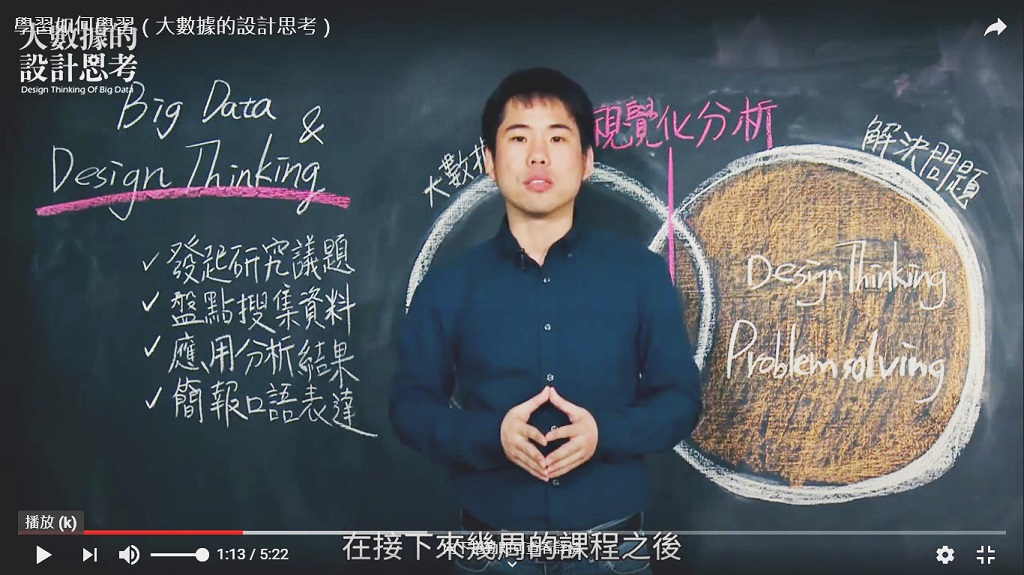 學習如何學習（大數據的設計思考）
大數據的
設計思考
Design Thinking Of Big Data
Big Data
&
Design Thinking
✓ 發起研究議題
✓ 盤點搜集資料
✓ 應用分析結果
✓ 簡報口語表達
大數
視覺化分析
解決問題
Design Thinking
Problem solving
播放 (k)
1:13 / 5:22
在接下來幾周的課程之後